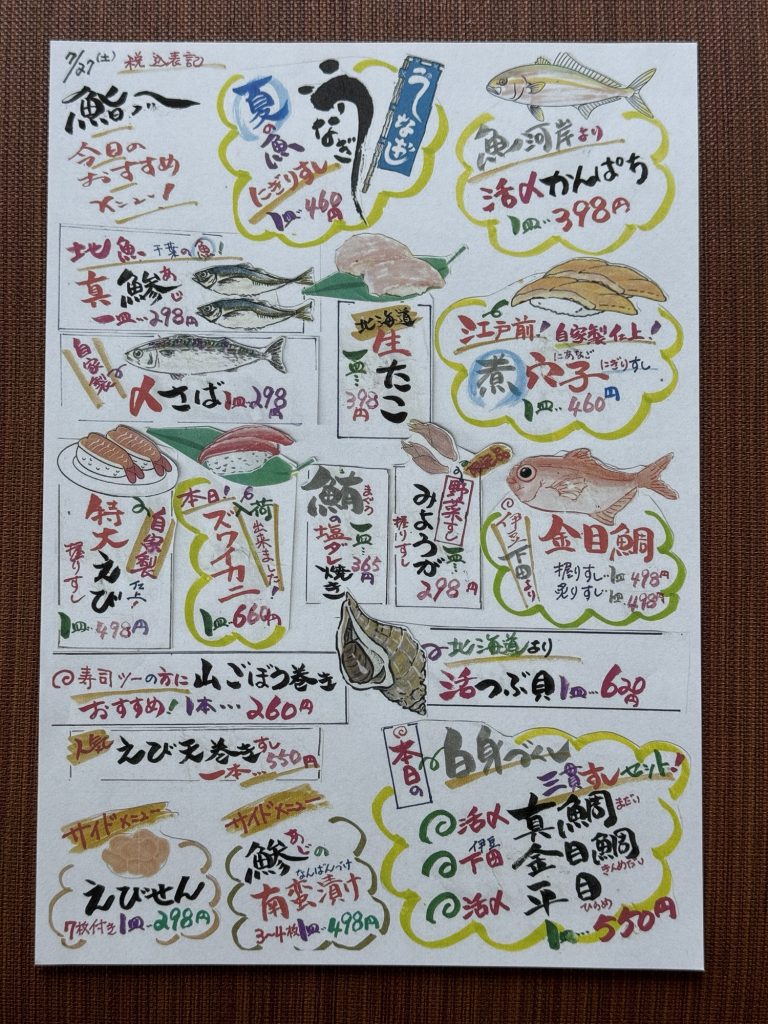 7/27(土) 税込表記
鮨へ
今日の
おすすめ
メニュー!
夏の魚
うなぎ
うなぎ
にぎりすし
1皿…460円
魚河岸より
活〆かんぱち
1皿…398円
地魚 千葉の魚!
真鯵あじ
一皿…298円
北海道
生たこ
一皿…398円
江戸前!自家製仕上!
煮穴子にあなご
にぎりすし
1皿…460円
自家製
〆さば 1皿…298円
特大えび
握りすし
自家製仕上!
1皿…498円
本日!入荷出来ました!
ズワイカニ
1皿…660円
鮪まぐろの塩タレ焼き
一皿…365円
野菜すし
みょうが
握りすし
一皿…298円
伊豆下田より
金目鯛
握りすし 1皿498円
炙りすし 1皿498円
◎寿司ツーの方に 山ごぼう巻き
おすすめ!1本…260円
北海道より
活つぶ貝 1皿…620円
人気 えび天巻きすし
一本…550円
本日の
白身づくし
三貫すしセット!
活〆 真鯛まだい
伊豆下田 金目鯛きんめだい
活〆 平目ひらめ
1皿…550円
サイドメニュー
えびせん
7枚付き 1皿…298円
サイドメニュー
鯵あじの
南蛮漬けなんばんづけ
3~4枚 1皿…498円